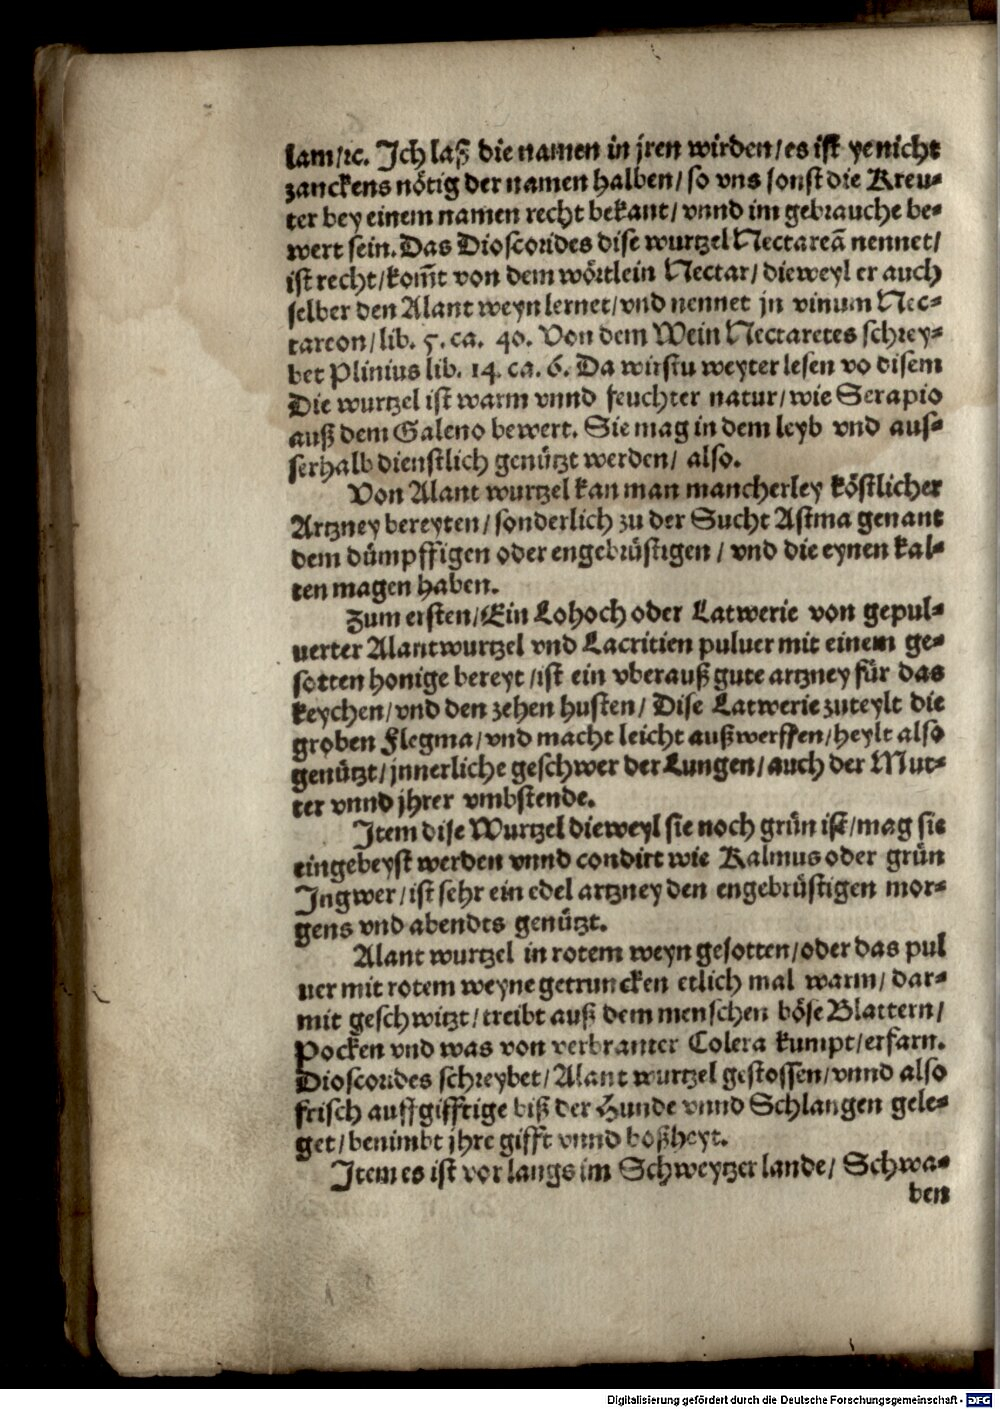 lam/ꝛc. Ich laß die namen in jren wirden/es ist ye nicht
zanckens nötig der namen halben/ so vns sonst die Kreu-
ter bey einem namen recht bekant/ vnnd im gebrauche be-
wert sein. Das Dioscorides dise wurtzel Nectareã nennet/
ist recht/kom̃t von dem wörtlein Nectar/ dieweyl er auch
selber den Alant weyn lernet/vnd nennet jn vinum Nec-
tareon/lib. 5. ca. 40. Von dem Wein Nectaretes schrey-
bet Plinius lib. 14. ca. 6. Da wirstu weyter lesen vo disem
Die wurtzel ist warm vnnd feuchter natur/wie Serapio
auß dem Galeno bewert. Sie mag in dem leyb vnd aus-
serhalb dienstlich genützt werden/ also.
Von Alant wurtzel kan man mancherley köstlicher
Artzney bereyten/sonderlich zu der Sucht Astma genant
dem dümpffigen oder engebrüstigen/ vnd die eynen kal-
ten magen haben.
Zum ersten/Ein Lohoch oder Latwerie von gepul-
uerter Alantwurtzel vnd Lacritien puluer mit einem ge-
sotten honige bereyt/ist ein vberauß gute artzney für das
keychen/vnd den zehen husten/ Dise Latwerie zuteylt die
groben Flegma/vnd macht leicht außwerffen/heylt also
genützt/jnnerliche geschwer der Lungen/auch der Mut-
ter vnnd jhrer vmbstende.
Item dise Wurtzel dieweyl sie noch grün ist/mag sie
eingebeyst werden vnnd condirt wie Kalmus oder grün
Ingwer/ist sehr ein edel artzney den engebrüstigen mor-
gens vnd abendts genützt.
Alant wurtzel in rotem weyn gesotten/oder das pul
uer mit rotem weyne getruncken etlich mal warm/ dar-
mit geschwitzt/treibt auß dem menschen böse Blattern/
Pocken vnd was von verbranter Colera kumpt/erfarn.
Dioscorides schreybet/Alant wurtzel gestossen/vnnd also
frisch auff gifftige biß der Hunde vnnd Schlangen gele-
get/benimbt jhre gifft vnnd boßheyt.
Item es ist vor langs im Schweytzer lande/ Schwa-
ben
Digitalisierung gefördert durch die Deutsche Forschungsgemeinschaft - DFG